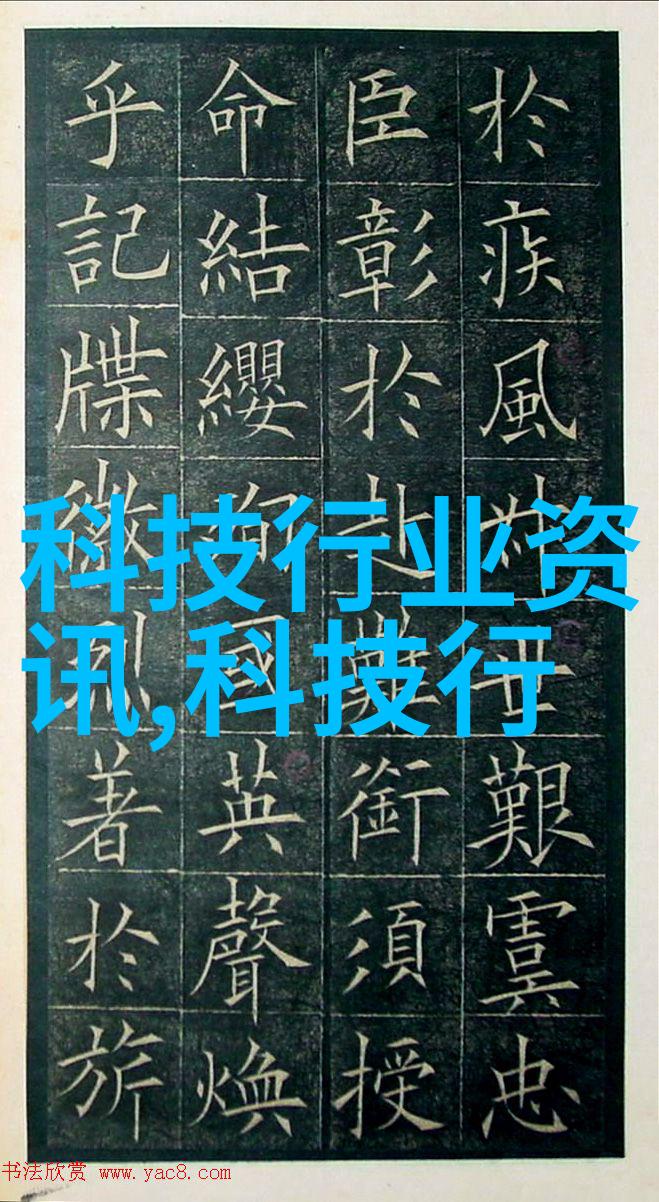 於疾風叔世艱虞忠
臣彰於赴難銜須授
命結纓殉國英聲煥
乎記牒徽烈著於旂
科技行业资
讯,科技行
书法欣赏 www.yac8.com